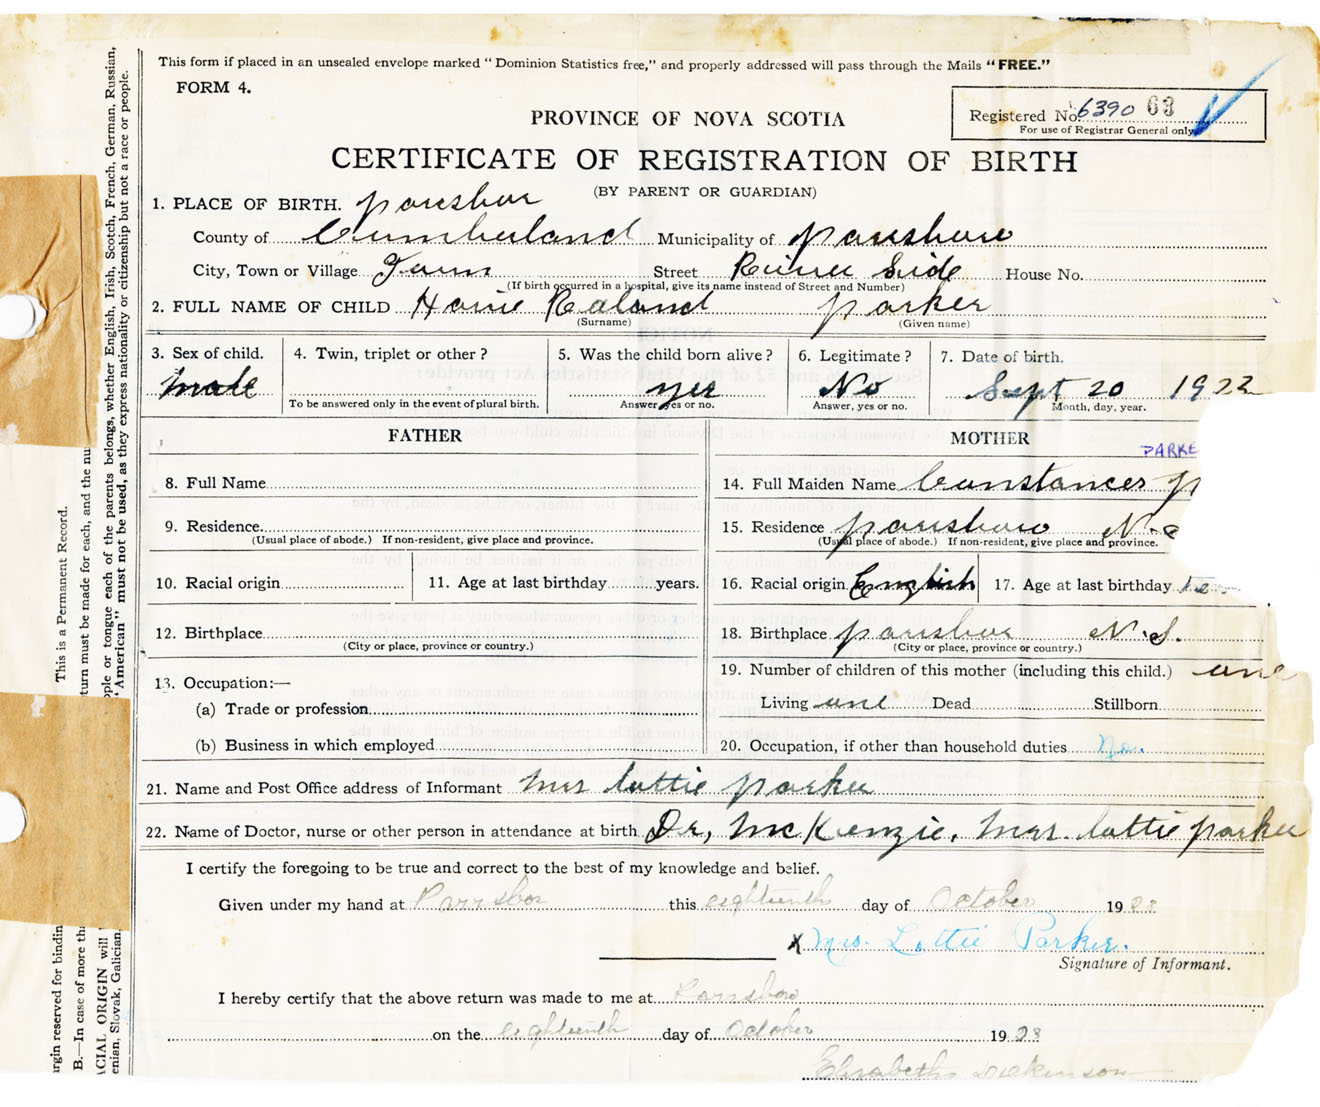 This form if placed in an unsealed envelope marked "Dominion Statistics free," and properly addressed will pass through the Mails "FREE."
FORM 4.
PROVINCE OF NOVA SCOTIA
Registered No. 6390 63
For use of Registrar General only
CERTIFICATE OF REGISTRATION OF BIRTH
(BY PARENT OR GUARDIAN)
1. PLACE OF BIRTH. parrsboro
County of Cumberland Municipality of parrsboro
City, Town or Village Town Street River Side House No.
(If birth occurred in a hospital, give its name instead of Street and Number)
2. FULL NAME OF CHILD Raland parker
(Surname) (Given name)
3. Sex of child. 4. Twin, triplet or other? 5. Was the child born alive? 6. Legitimate? 7. Date of birth.
male yes No Sept 20 192
To be answered only in the event of plural birth. Answer yes or no. Answer, yes or no. Month, day, year.
FATHER MOTHER
PARKE
8. Full Name 14. Full Maiden Name Cunstances p
9. Residence. 15. Residence parrsboro N.
(Usual place of abode.) If non-resident, give place and province. (Usual place of abode.) If non-resident, give place and province.
10. Racial origin 11. Age at last birthday years. 16. Racial origin English 17. Age at last birthday
12. Birthplace 18. Birthplace parrsboro N.S.
(City or place, province or country.) (City or place, province or country.)
19. Number of children of this mother (including this child.) one
13. Occupation:—
(a) Trade or profession Living one Dead Stillborn
(b) Business in which employed 20. Occupation, if other than household duties No.
21. Name and Post Office address of Informant Mrs Lottie parker
22. Name of Doctor, nurse or other person in attendance at birth Dr, McKenzie, Mrs. Lottie parker
I certify the foregoing to be true and correct to the best of my knowledge and belief.
Given under my hand at Parrsboro this eighteenth day of October 192
x Mrs. Lottie Parker.
Signature of Informant.
I hereby certify that the above return was made to me at Parrsboro
on the eighteenth day of October 1923
Elisabeth Dickinson
This is a Permanent Record.
turn must be made for each, and the nu
ople or tongue each of the parents belongs, whether English, Irish, Scotch, French, German, Russian,
"American" must not be used, as they express nationality or citizenship but not a race or people.
argin reserved for bindin
B.—In case of more tha
ACIAL ORIGIN will
enian, Slovak, Galician,